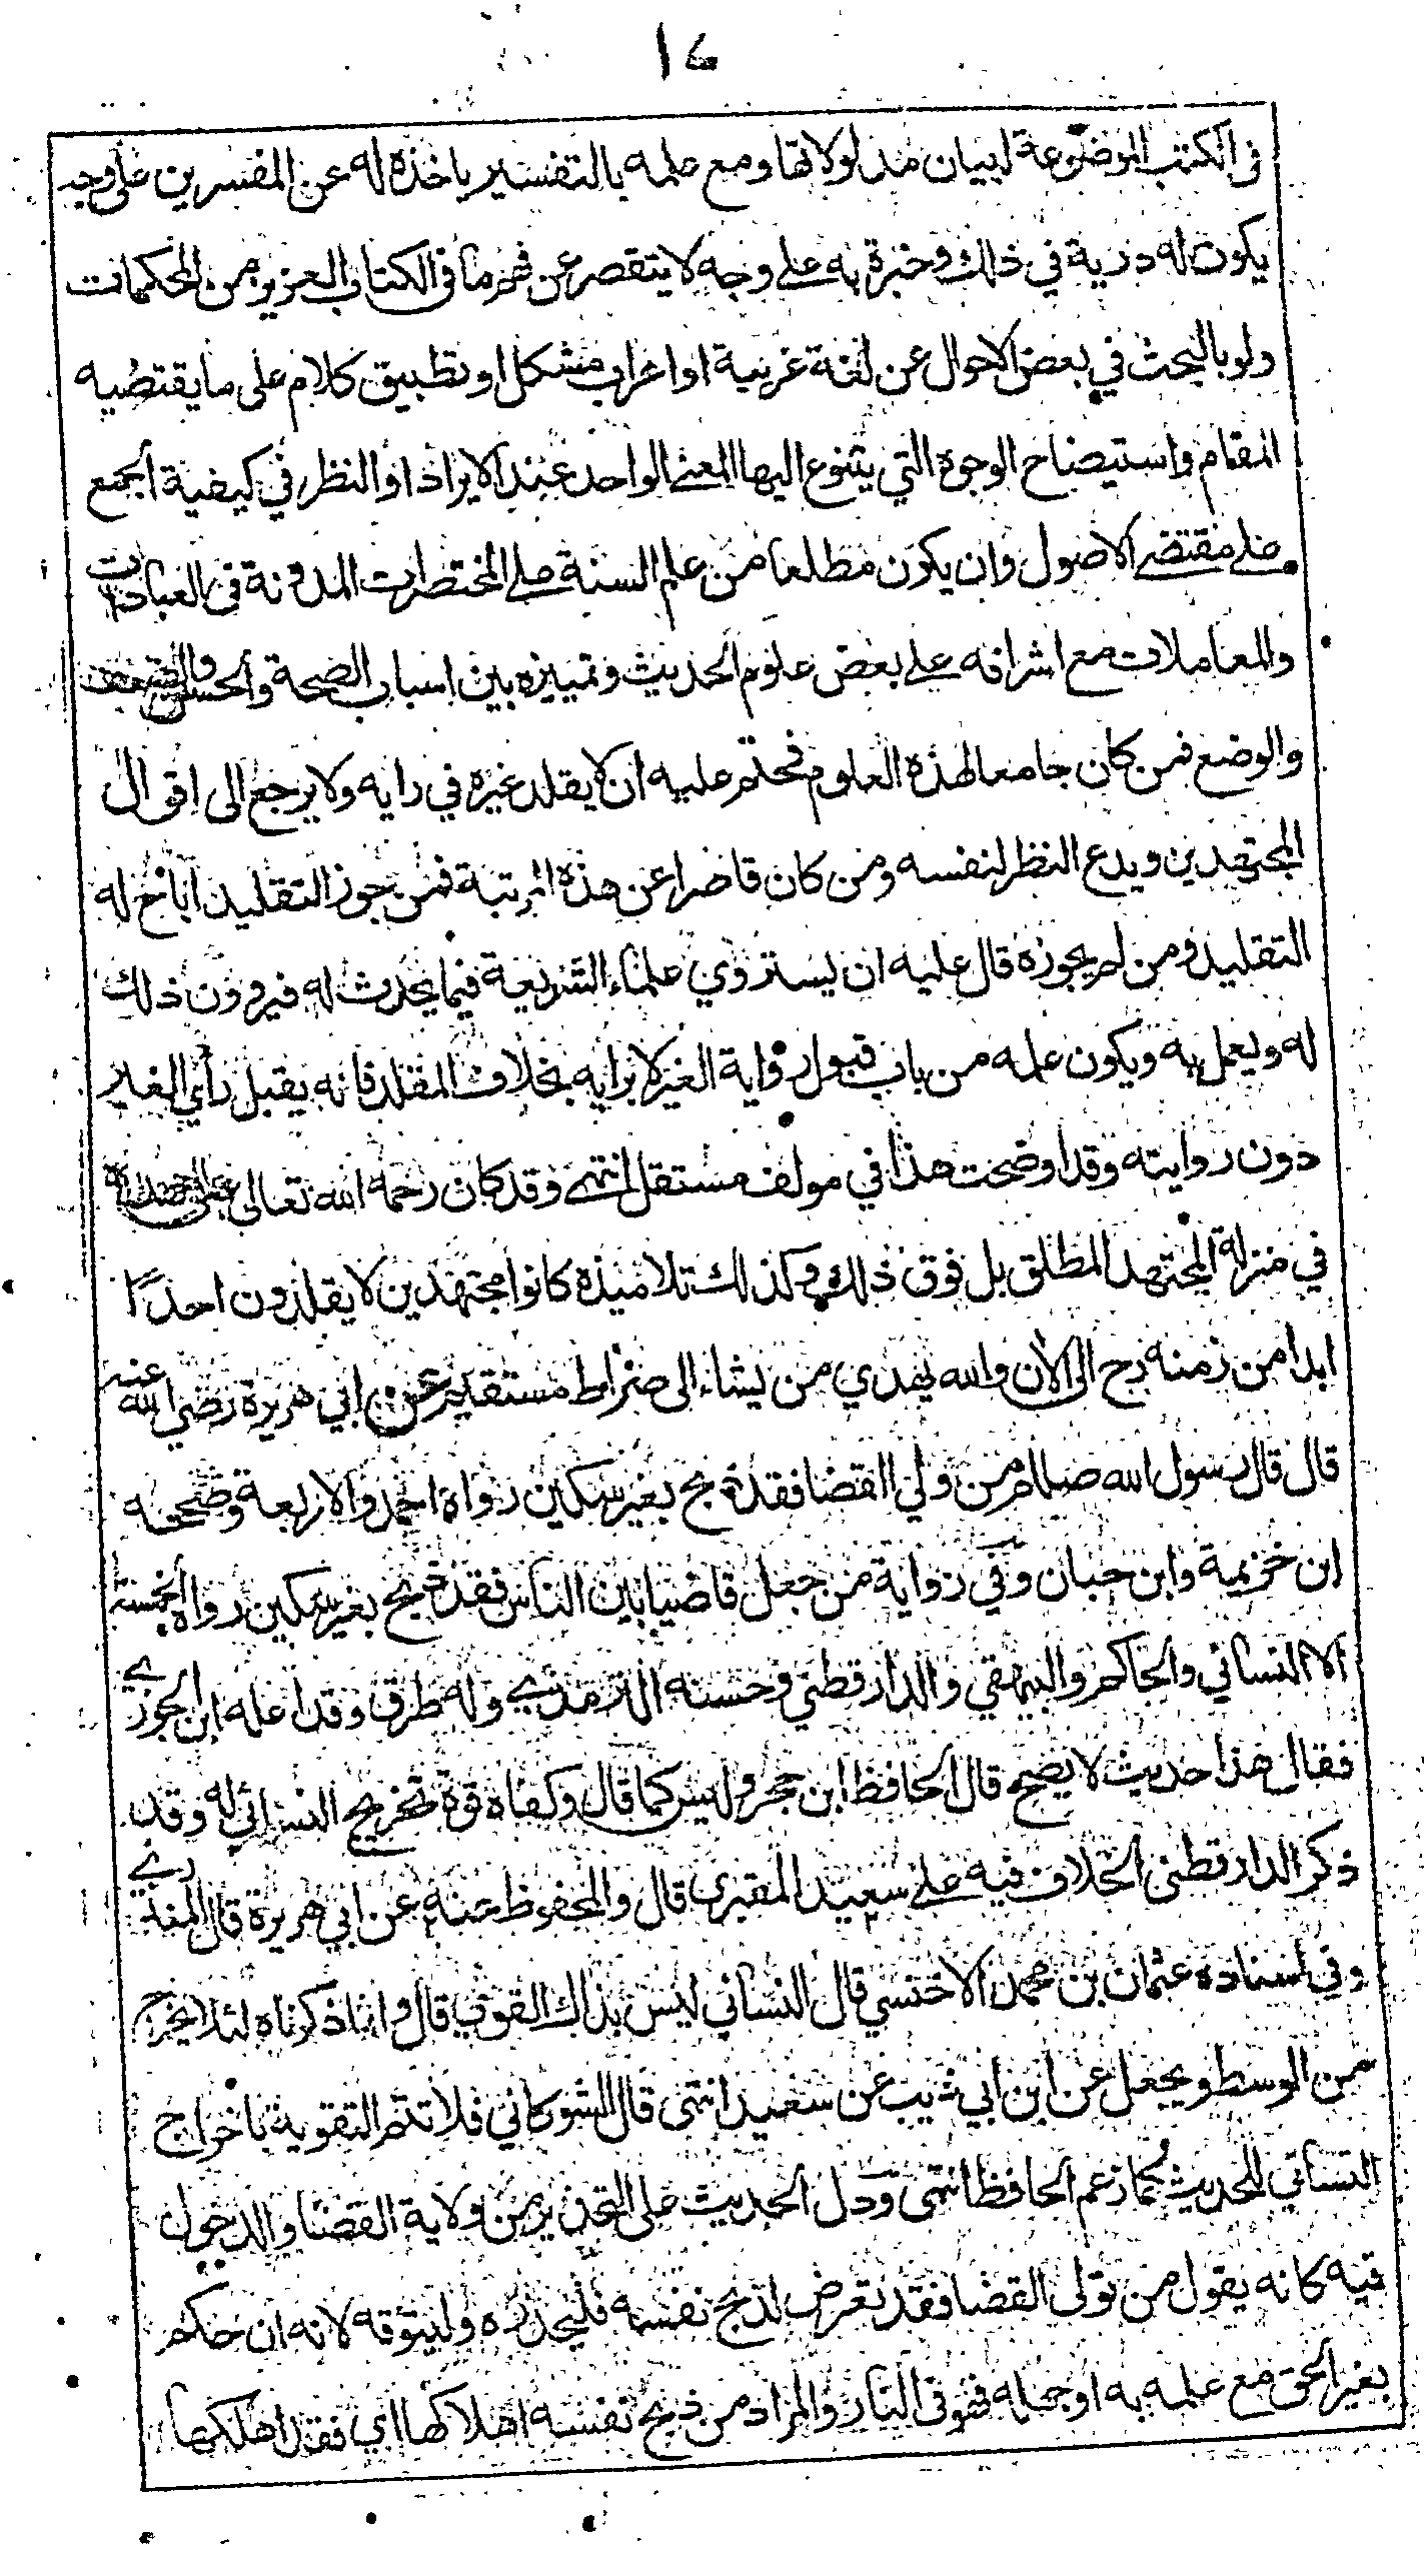 ١٤
في الكتب الموضوعة لبيان مدلولاتها ومع علمه بالتفسير ياخذه له عن المفسرين على وجه
يكون له دربة في ذلك وخبرة به على وجه لا يتقصر عن فهم ما في الكتاب العزيز من المحكمات
ولو بالبحث في بعض الاحوال عن لغة غريبة او اعراب مشكل او تطبيق كلام على ما يقتضيه
المقام واستيضاح الوجوه التي يتنوع اليها المعنى الواحد عند الايراد او النظر في كيفية الجمع
على مقتضى الاصول وان يكون مطلعا من علم السنة على المختصرات المدونة في العبادات
والمعاملات مع اشرافه على بعض علوم الحديث وتمييزه بين اسباب الصحة والحسن والضعف
والوضع فمن كان جامعا لهذه العلوم فحتم عليه ان لا يقلد غيره في رايه ولا يرجع الى اقوال
المجتهدين ويدع النظر لنفسه ومن كان قاصرا عن هذه المرتبة فمن جوز التقليد اباح له
التقليد ومن لم يجوزه قال عليه ان يستروي علماء الشريعة فيما يحدث له فيروون ذلك
له ويعمل به ويكون عمله من باب قبول رواية الغير لا برايه بخلاف المقلد فانه يقبل رأي الغير
دون روايته وقد اوضحت هذا في مولف مستقل انتهى وقد كان رحمه الله تعالى
في منزلة المجتهد المطلق بل فوق ذلك وكذلك تلاميذه كانوا مجتهدين لا يقلدون احدًا
ابدا من زمنه رح الى الآن والله يهدي من يشاء الى صراط مستقيم عن ابي هريرة رضي الله عنه
قال قال رسول الله صللم من ولي القضا فقد ذبح بغير سكين رواه احمد والاربعة وصححه
ابن خزيمة وابن حبان وفي رواية من جعل قاضيا بين الناس فقد ذبح بغير سكين رواه الخمسة
الا النسائي والحاكم والبيهقي والدارقطني وحسنه الترمذي وله طرق وقد اعله ابن الجوزي
فقال هذا حديث لا يصح قال الحافظ ابن حجر وليس كما قال وكفاه قوة تخريج النسائي له وقد
ذكر الدارقطني الخلاف فيه على سعيد المقبري قال والمحفوظ عنه عن ابي هريرة قال المنذري
وفي اسناده عثمان بن محمد الاخنسي قال النسائي ليس بذاك القوي قال وانما ذكرناه لئلا يخرج
من الوسط ويجعل عن ابن ابي ذيب عن سعيد انتهى قال الشوكاني فلا تتم التقوية باخراج
النسائي للحديث كما زعم الحافظ انتهى ودل الحديث على التحذير من ولاية القضا والدخول
فيه كانه يقول من تولى القضا فقد تعرض لذبح نفسه فليحذره وليتوقه لانه ان حكم
بغير الحق مع علمه به او جهله فهو في النار والمراد من ذبح نفسه اهلاكها اي فقد اهلكها